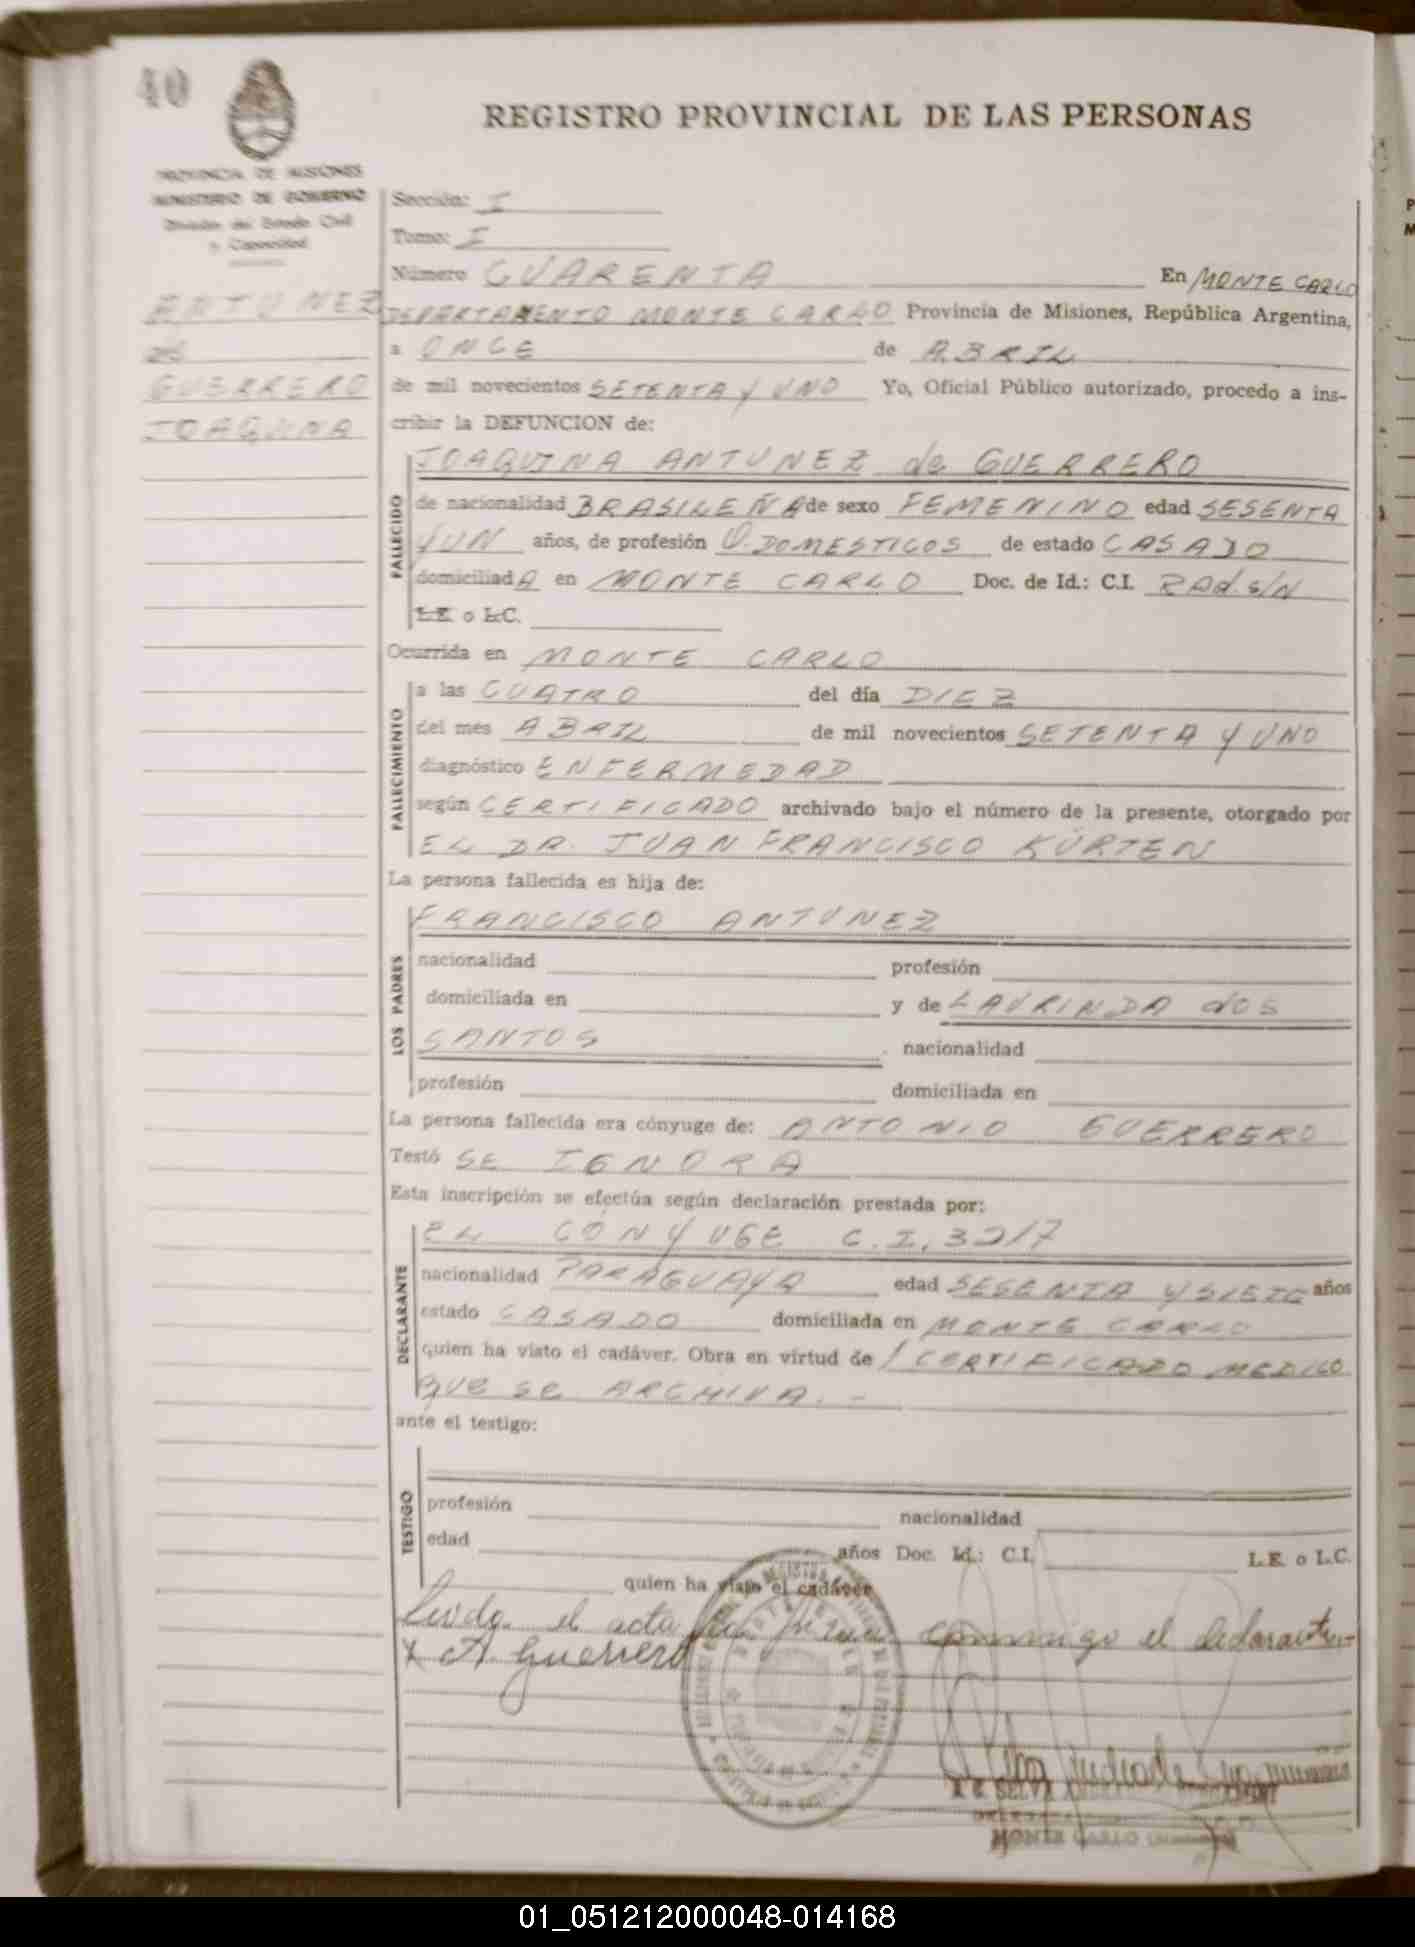 40
REGISTRO PROVINCIAL DE LAS PERSONAS
PROVINCIA DE MISIONES
MINISTERIO DE GOBIERNO
División del Estado Civil
y Capacidad
Sección: I
Tomo: I
Número CUARENTA En MONTE CARLO
ANTUNEZ
DEPARTAMENTO MONTE CARLO Provincia de Misiones, República Argentina,
de
a ONCE de ABRIL
GUERRERO
de mil novecientos SETENTA Y UNO Yo, Oficial Público autorizado, procedo a ins-
JOAQUINA
cribir la DEFUNCION de:
JOAQUINA ANTUNEZ de GUERRERO
FALLECIDO
de nacionalidad BRASILEÑA de sexo FEMENINO edad SESENTA
Y UN años, de profesión Q. DOMESTICOS de estado CASADO
domiciliadA en MONTE CARLO Doc. de Id.: C.I. RAd. s/N
L.E. o L.C.
Ocurrida en MONTE CARLO
FALLECIMIENTO
a las CUATRO del día DIEZ
del mes ABRIL de mil novecientos SETENTA Y UNO
diagnóstico ENFERMEDAD
según CERTIFICADO archivado bajo el número de la presente, otorgado por
EL DR. JUAN FRANCISCO KÜRTEN
La persona fallecida es hija de:
LOS PADRES
FRANCISCO ANTUNEZ
nacionalidad profesión
domiciliada en y de LAURINDA dOS
SANTOS nacionalidad
profesión domiciliada en
La persona fallecida era cónyuge de: ANTONIO GUERRERO
Testó SE IGNORA
Esta inscripción se efectúa según declaración prestada por:
DECLARANTE
EL CÓNYUGE C.I. 3217
nacionalidad PARAGUAYA edad SESENTA Y SIETE años
estado CASADO domiciliada en MONTE CARLO
quien ha visto el cadáver. Obra en virtud de 1 CERTIFICADO MEDICO
QUE SE ARCHIVA.-
ante el testigo:
TESTIGO
profesión nacionalidad
edad años Doc. Id.: C.I. L.E. o L.C.
quien ha visto el cadáver
Leida el acta la firma conmigo el declarante.-
x A. Guerrero
MONTE CARLO
01_051212000048-014168